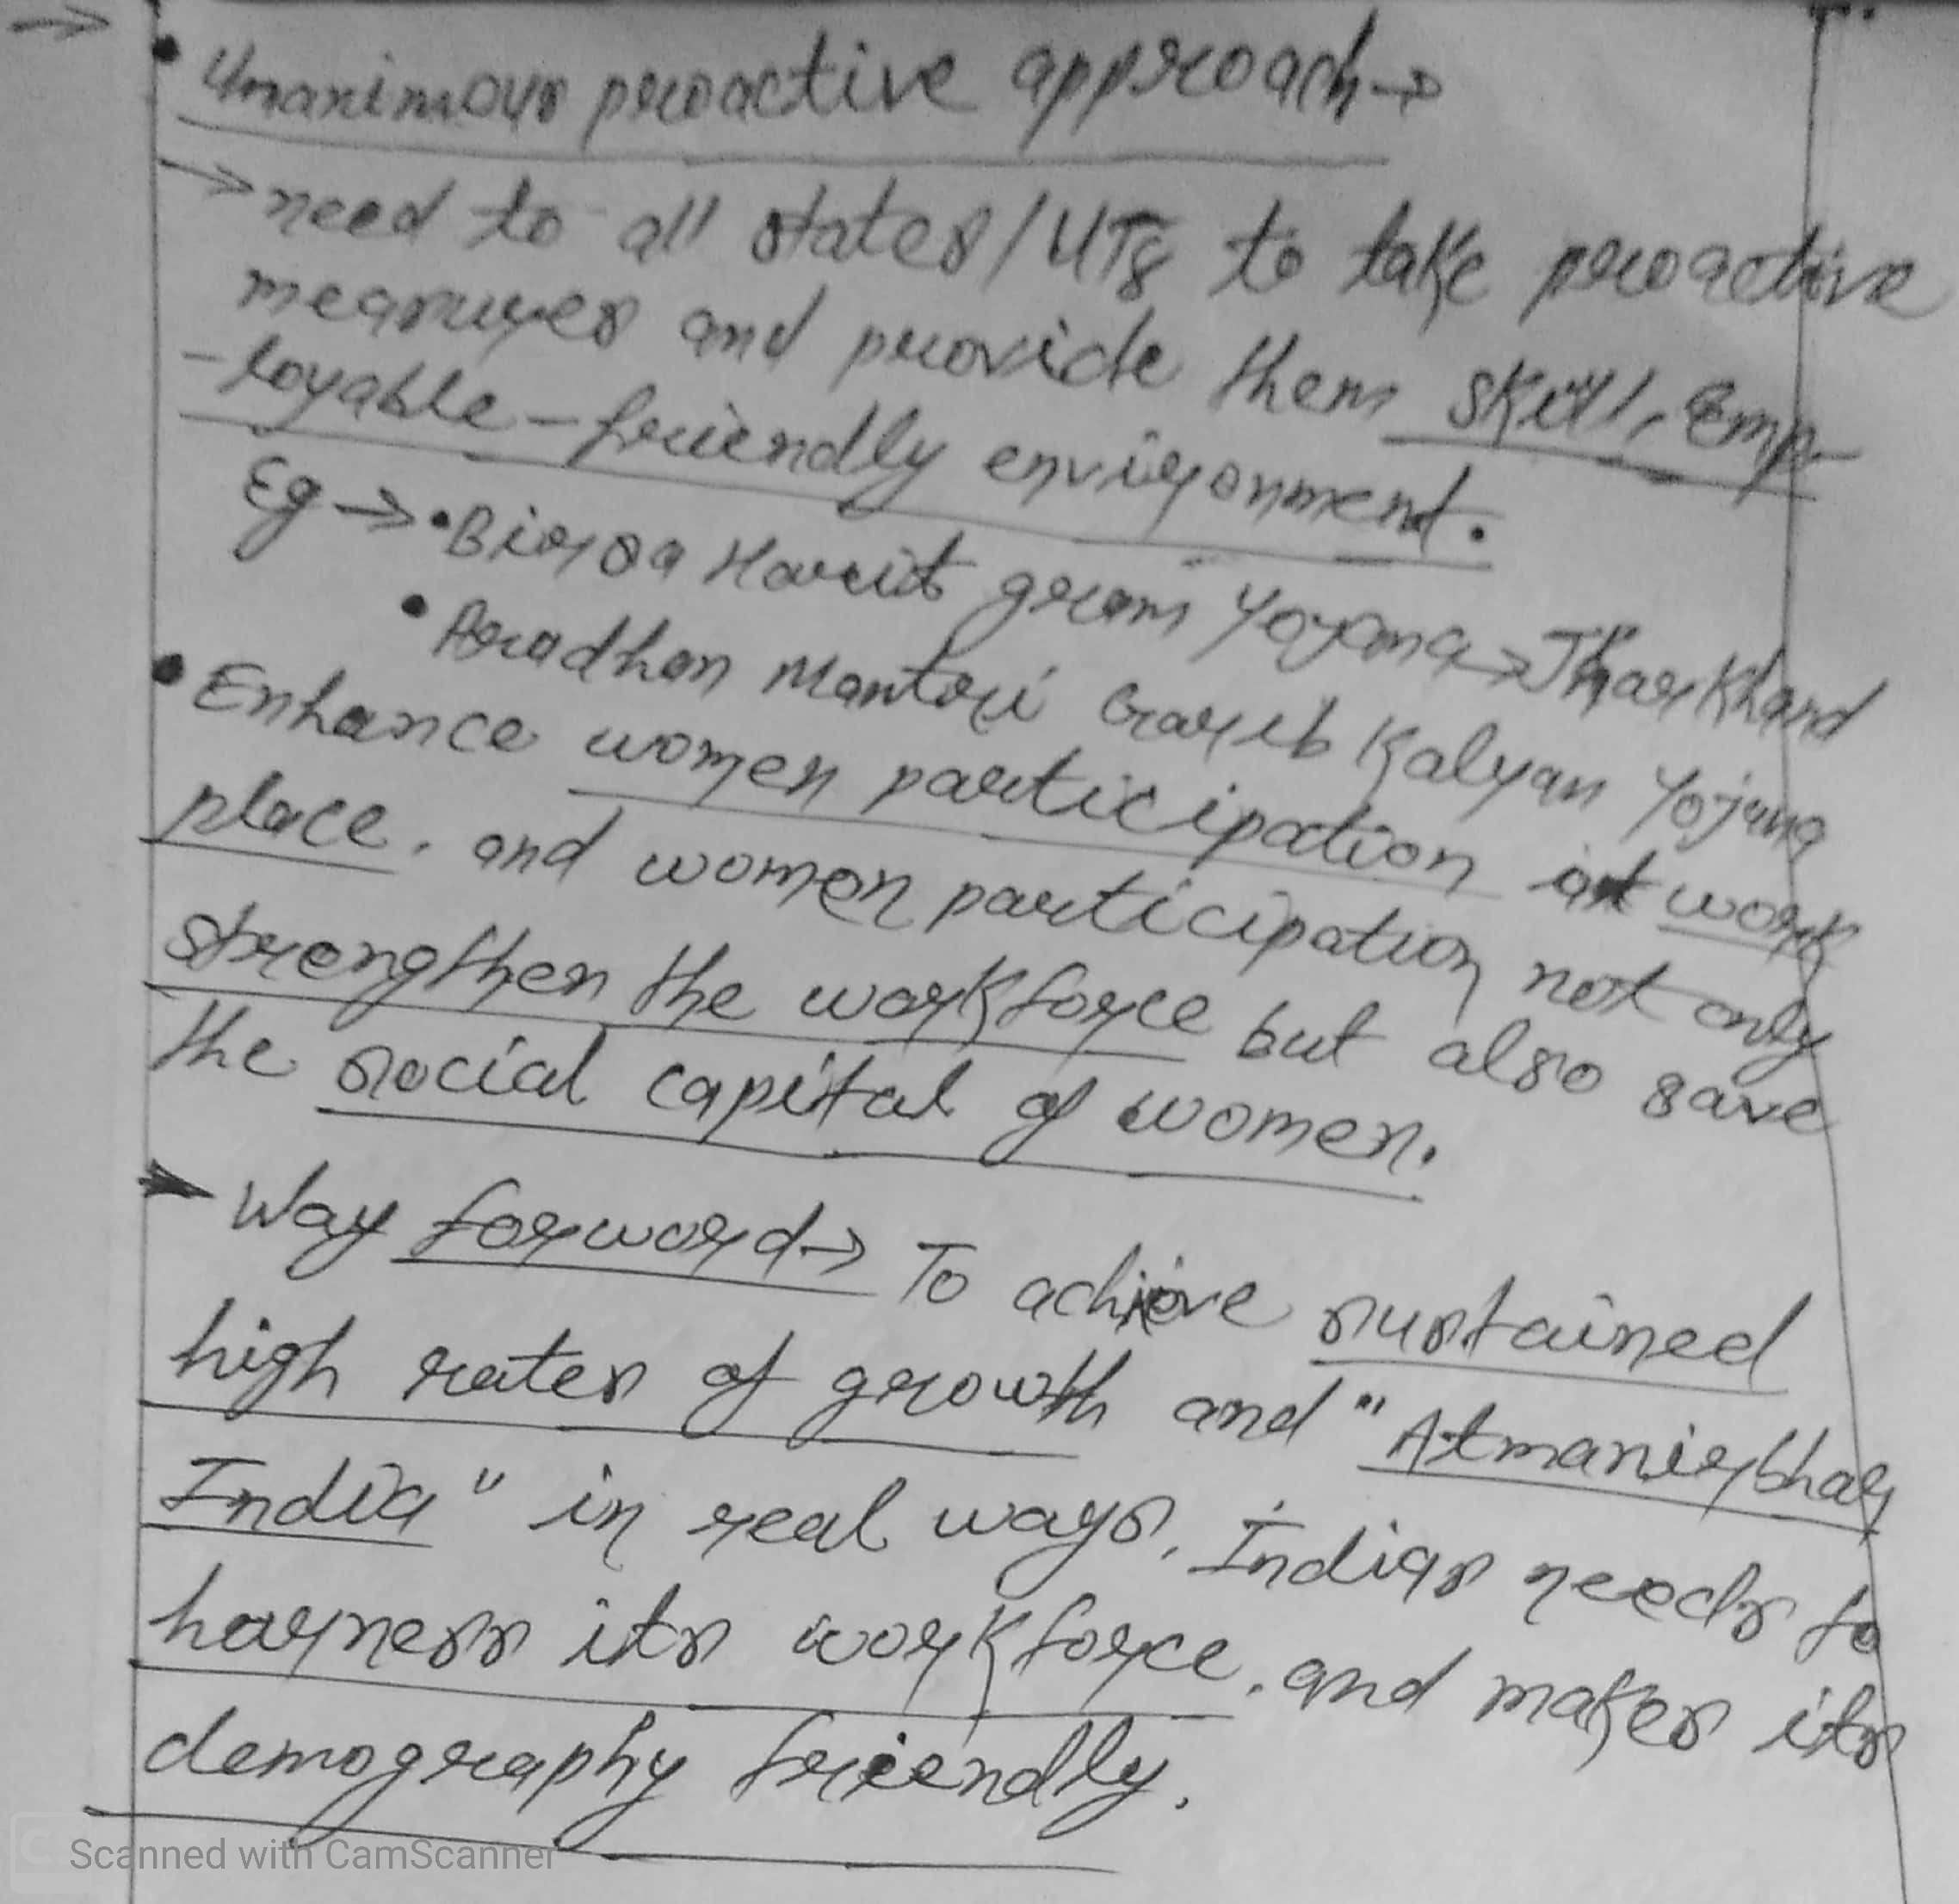 →
• Unanimous proactive approach →
→ need to all states/UTs to take proactive
measures and provide them skill, Emp-
-loyable-friendly environment.
Eg → • Birsa Harit gram Yojana → Jharkhand
• Pradhan Mantri Garib Kalyan Yojana
• Enhance women participation at work
place. and women participation not only
strengthen the workforce but also save
the social capital of women.
→ Way forword → To achieve sustained
high rates of growth and "Atmanirbhar
India" in real ways, Indias needs to
harness its workforce, and makes its
demography friendly.
Scanned with CamScanner